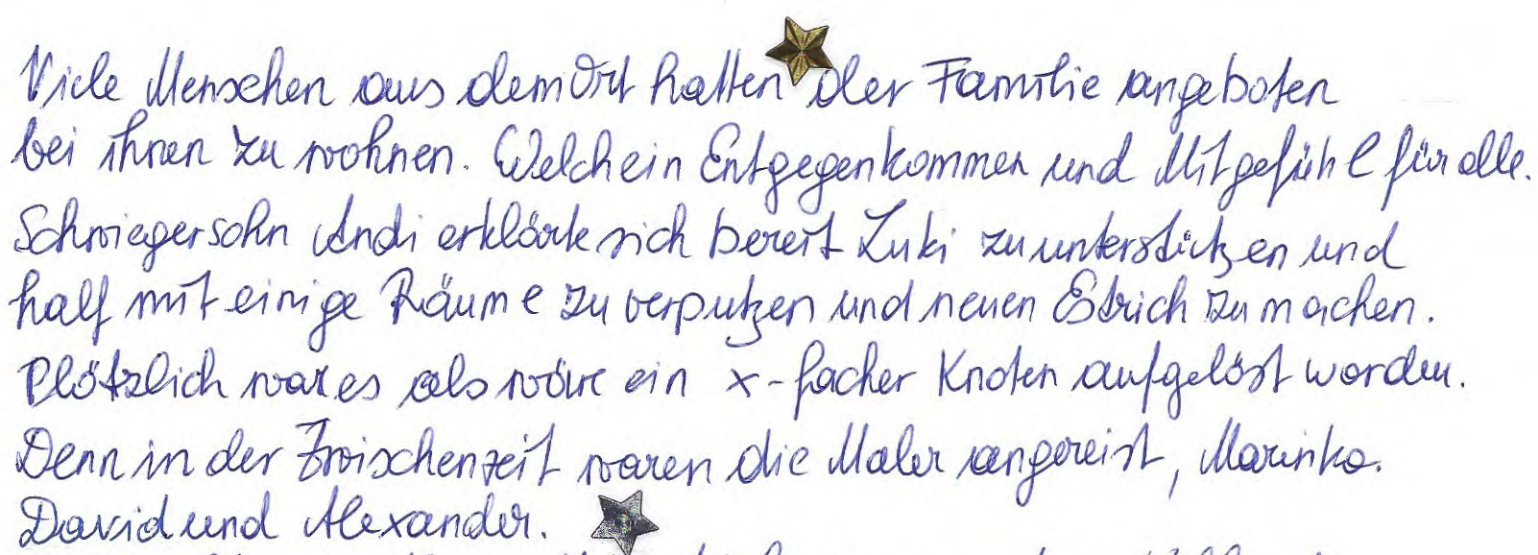 Viele Menschen aus dem Ort hatten der Familie angeboten
bei ihnen zu wohnen. Welch ein Entgegenkommen und Mitgefühl für alle.
Schwiegersohn Andi erklärte sich bereit Luki zu unterstützen und
half mit einige Räume zu verputzen und neuen Estrich zu machen.
Plötzlich war es als wäre ein x-facher Knoten aufgelöst worden.
Denn in der Zwischenzeit waren die Maler angereist, Marinko.
David und Alexander.